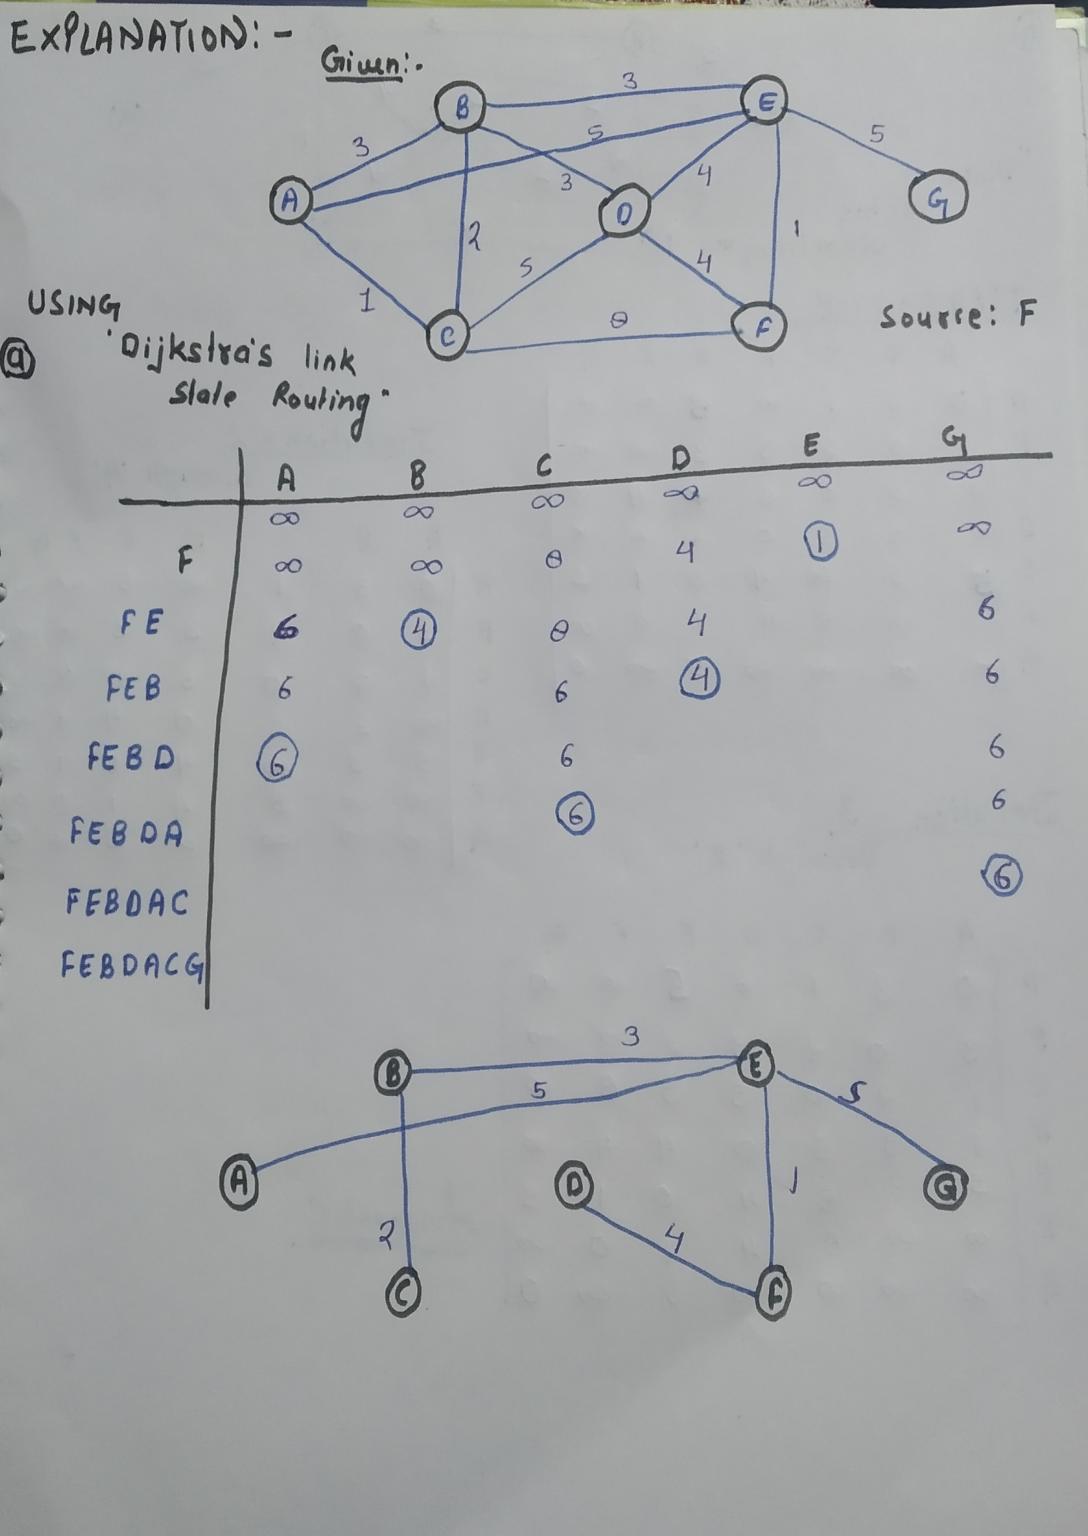 EXPLANATION:-
Given:-
B 3 E
3 5 5
A 3 D 4 G
2 5 4 1
1 C θ F
Source: F
USING
ⓐ "Dijkstra's link
State Routing"
A B C D E G
∞ ∞ ∞ ∞ ∞ ∞
F ∞ ∞ θ 4 1 ∞
FE 6 4 θ 4 6
FEB 6 6 4 6
FEBD 6 6 6
FEBDA 6 6
FEBDAC 6
FEBDACG
B 3 E
5 5
A D G
2 4 1
C F